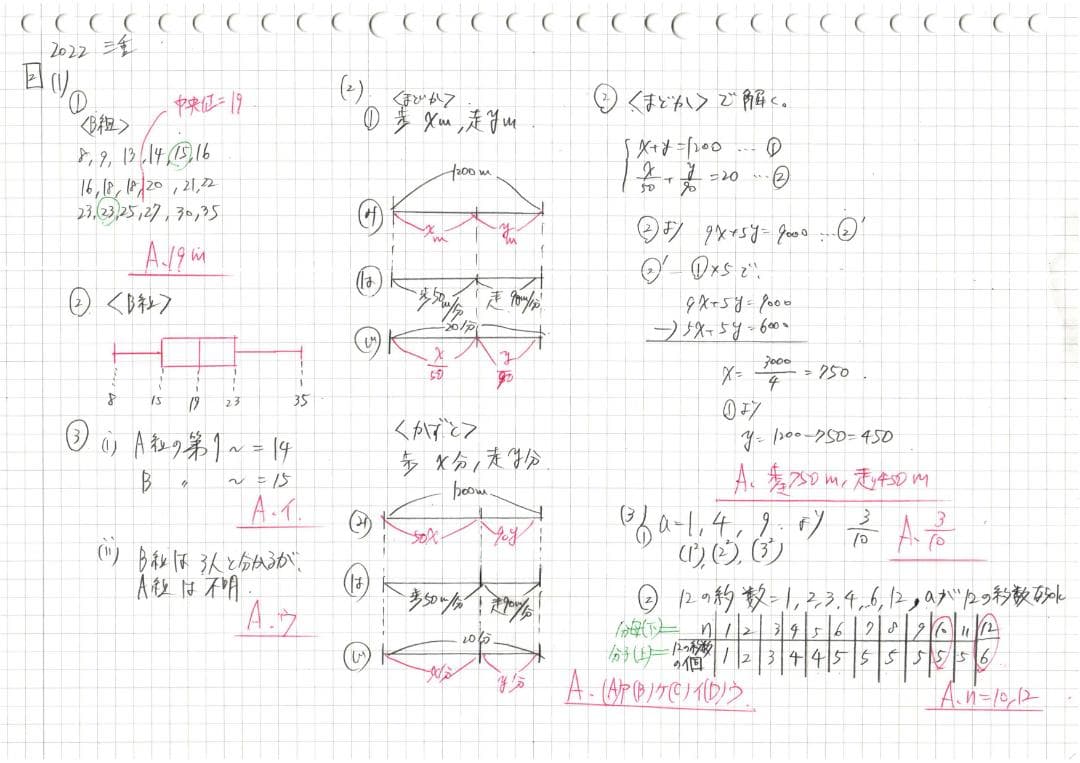 2022 三重
2 (1)
①
中央値=19
<B組>
8, 9, 13, 14, 15, 16
16, 18, 18, 20, 21, 22
23, 23, 25, 27, 30, 35
A. 19m
② <B組>
8 15 19 23 35
③ (i) A組の第1〜=14
B 〃 〜=15
A. イ.
(ii) B組は3人と分かるが、
A組は不明.
A. ウ
(2) <まどか>
① 歩 xm, 走 ym.
1200m
み xm ym
は 歩50m/分 走90m/分
じ 20分
x/50 y/90
<かずと>
歩 x分, 走 y分.
1200m
み 50x 90y
は 歩50m/分 走90m/分
じ 20分
x分 y分
A. (A)ア(B)ケ(C)イ(D)ウ
② <まどか>で解く。
x+y=1200 … ①
x/50 + y/90 = 20 … ②
②より 9x+5y=9000 … ②'
②' − ①×5で、
9x+5y=9000
−) 5x+5y=6000
x= 3000/4 = 750.
①より
y=1200−750=450
A. 歩750m, 走450m
(3) ① a=1, 4, 9. より 3/10 A. 3/10
(1²), (2²), (3²)
② 12の約数=1, 2, 3, 4, 6, 12, aが12の約数ならok
分母(下)= n 1 2 3 4 5 6 7 8 9 10 11 12
分子(上)= 12の約数の個 1 2 3 4 4 5 5 5 5 5 5 6
A. n=10, 12